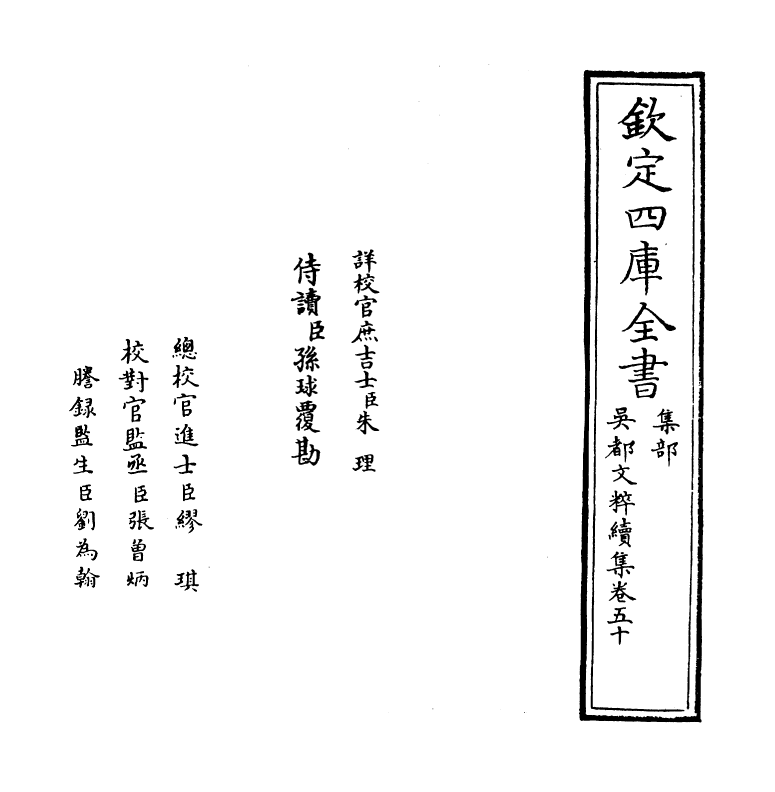 欽定四庫全書
集部
吳都文粹續集卷五十
詳校官庶吉士臣朱理
侍讀臣孫球覆勘
總校官進士臣繆琪
校對官監丞臣張曾炳
謄録監生臣劉為翰